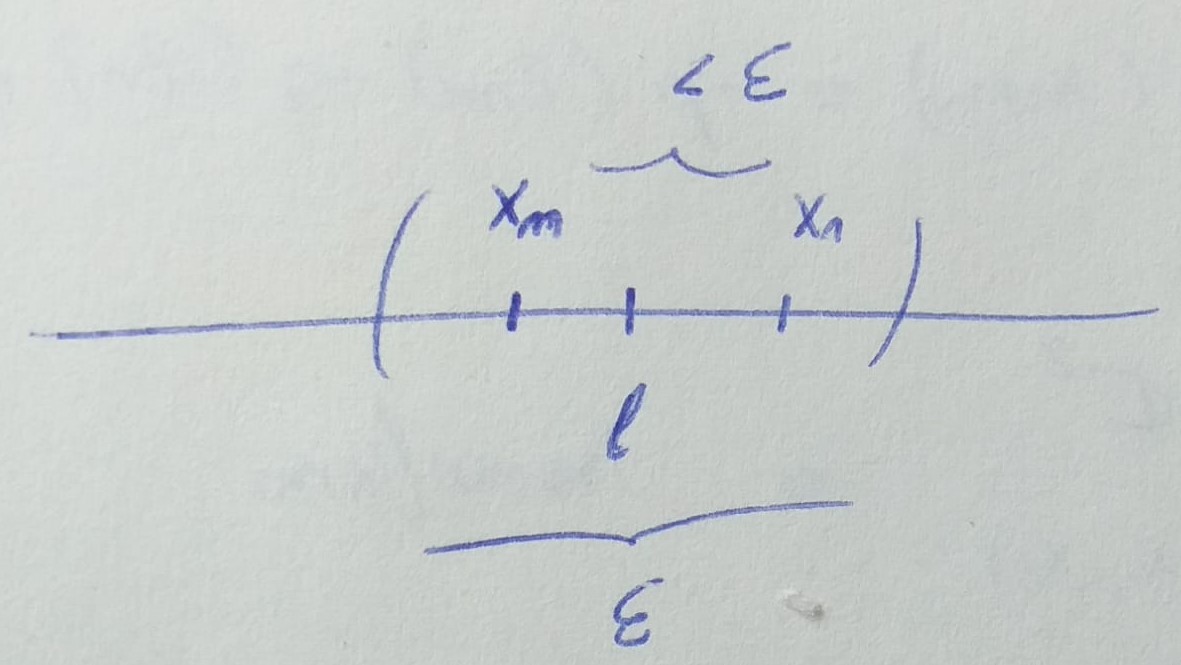 < ε
xₘ xₙ
l
ε